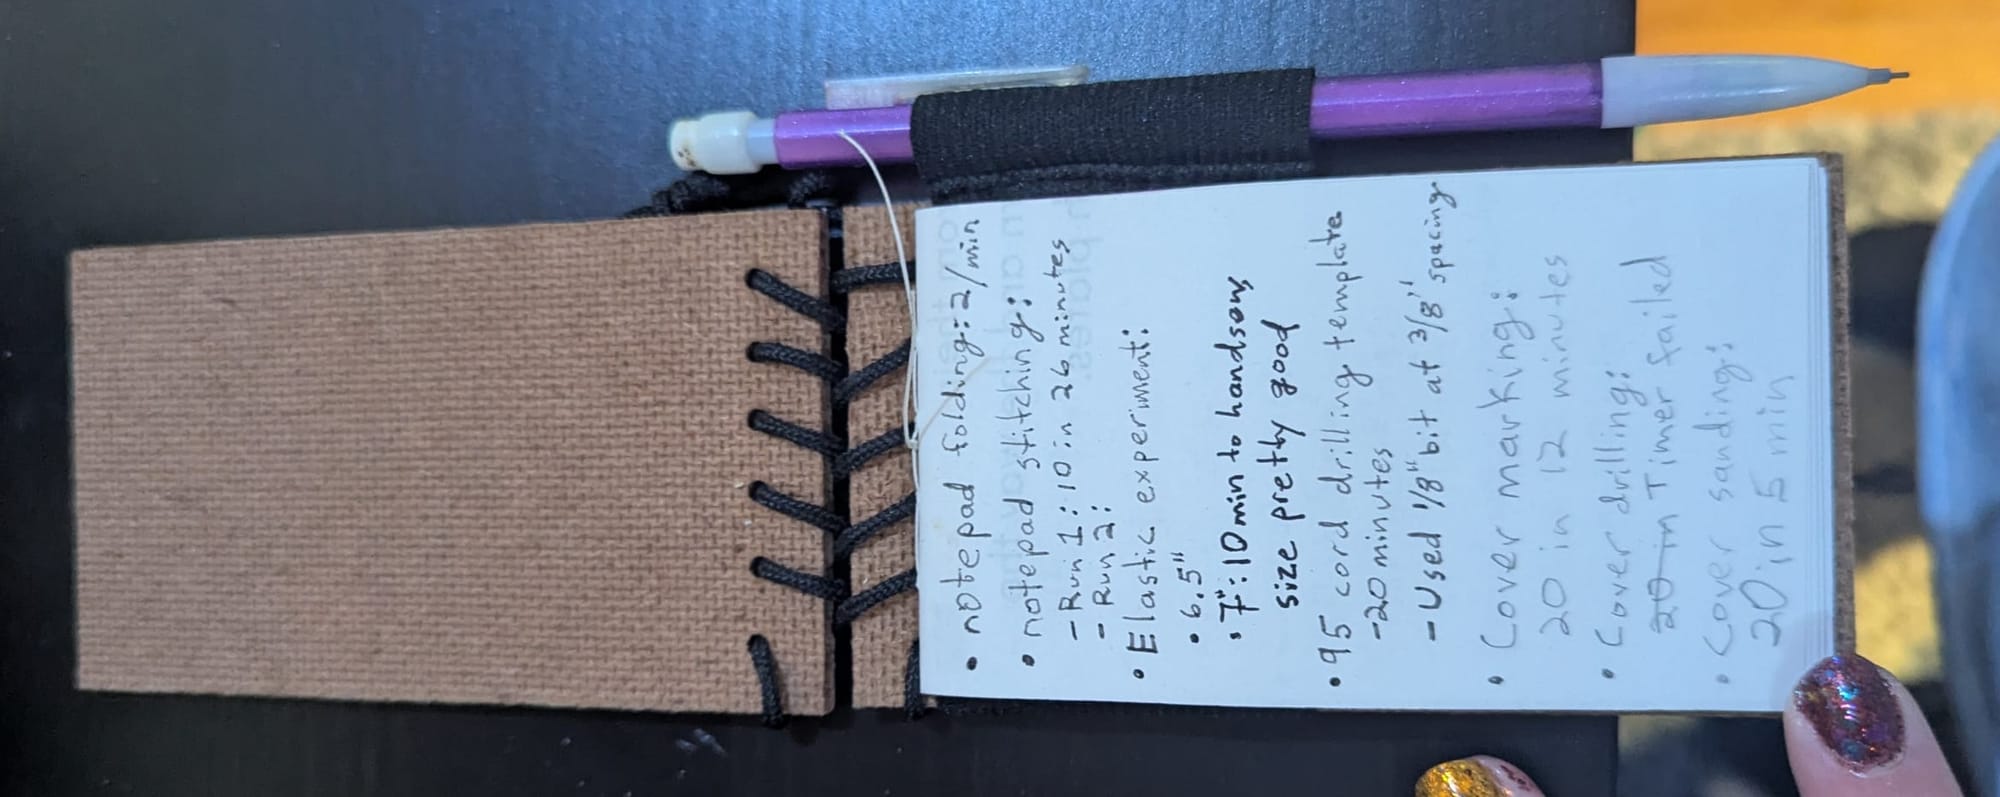 • notepad folding: 2/min
• notepad stitching:
- Run 1: 10 in 26 minutes
- Run 2:
• Elastic experiment:
• 6.5"
• 7": 10 min to handsew,
size pretty good
• 95 cord drilling template
- 20 minutes
- Used 1/8" bit at 3/8" spacing
• Cover marking:
20 in 12 minutes
• Cover drilling:
20 in Timer failed
• Cover sanding:
20 in 5 min